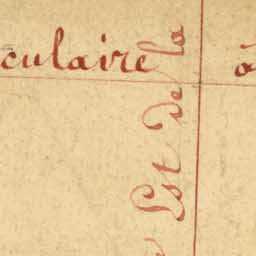 culaire
à
Est de la